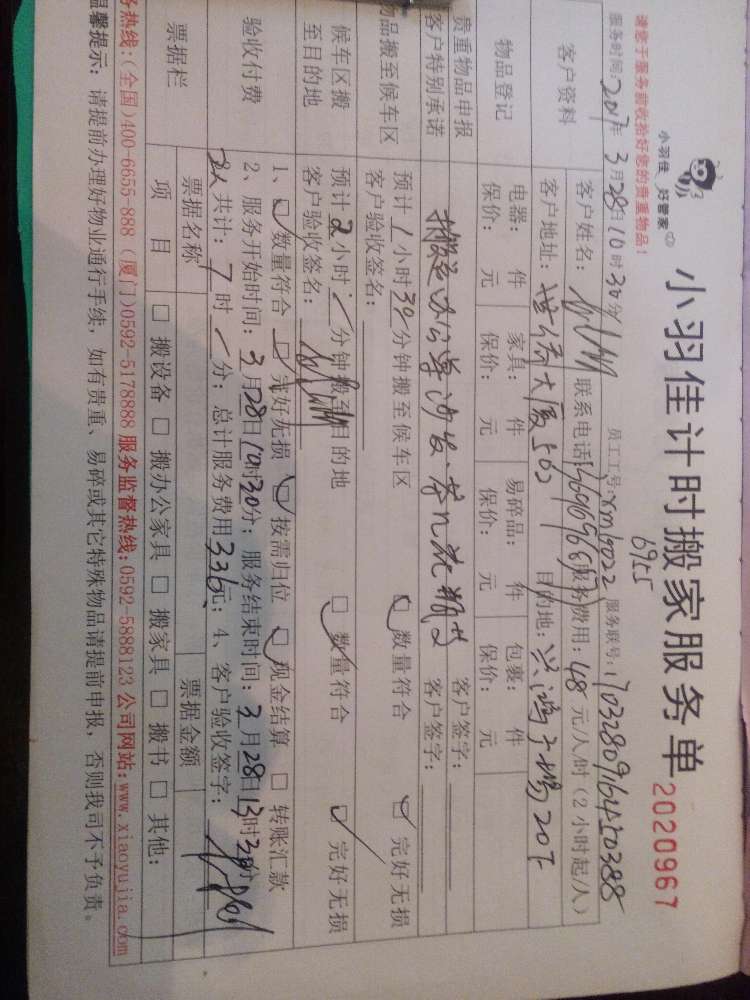 小羽佳 好管家
小羽佳计时搬家服务单 2020967
请您于服务前收拾好您的贵重物品！ 6955
服务时间：2017年3月28日10时30分 员工工号：xm6022 服务联号：1703280916450388
客户资料
客户姓名： 联系电话： 服务费用：48元/人/时（2小时起/人）
客户地址：世侨大厦502 目的地：兴鸿广场207
物品登记
电器： 件 家具： 件 易碎品： 件 包裹： 件
保价： 元 保价： 元 保价： 元 保价： 元
贵重物品申报 客户签字：
客户特别承诺 搬运办公桌沙发、茶几 客户签字：
物品搬至候车区
预计1小时30分钟搬至候车区 ☑ 数量符合 ☑ 完好无损
客户验收签名：
候车区搬至目的地
预计2小时/分钟搬至目的地 ☑ 数量符合 ☑ 完好无损
客户验收签名：
验收付费
1、☑ 数量符合 ☑ 完好无损 ☑ 按需归位 ☑ 现金结算 □ 转账汇款
2、服务开始时间：3月28日10时30分；服务结束时间：3月28日13时30分
2人共计：7时/分；总计服务费用336元；4、客户验收签字：
票据栏
票据名称 票据金额
项目 □ 搬设备 □ 搬办公家具 □ 搬家具 □ 搬书 □ 其他：
务热线：(全国)400-6655-888 (厦门)0592-5178888 服务监督热线：0592-5888123 公司网站：www.xiaoyujia.com
温馨提示：请提前办理好物业通行手续，如有贵重、易碎或其它特殊物品请提前申报，否则我司不予负责。